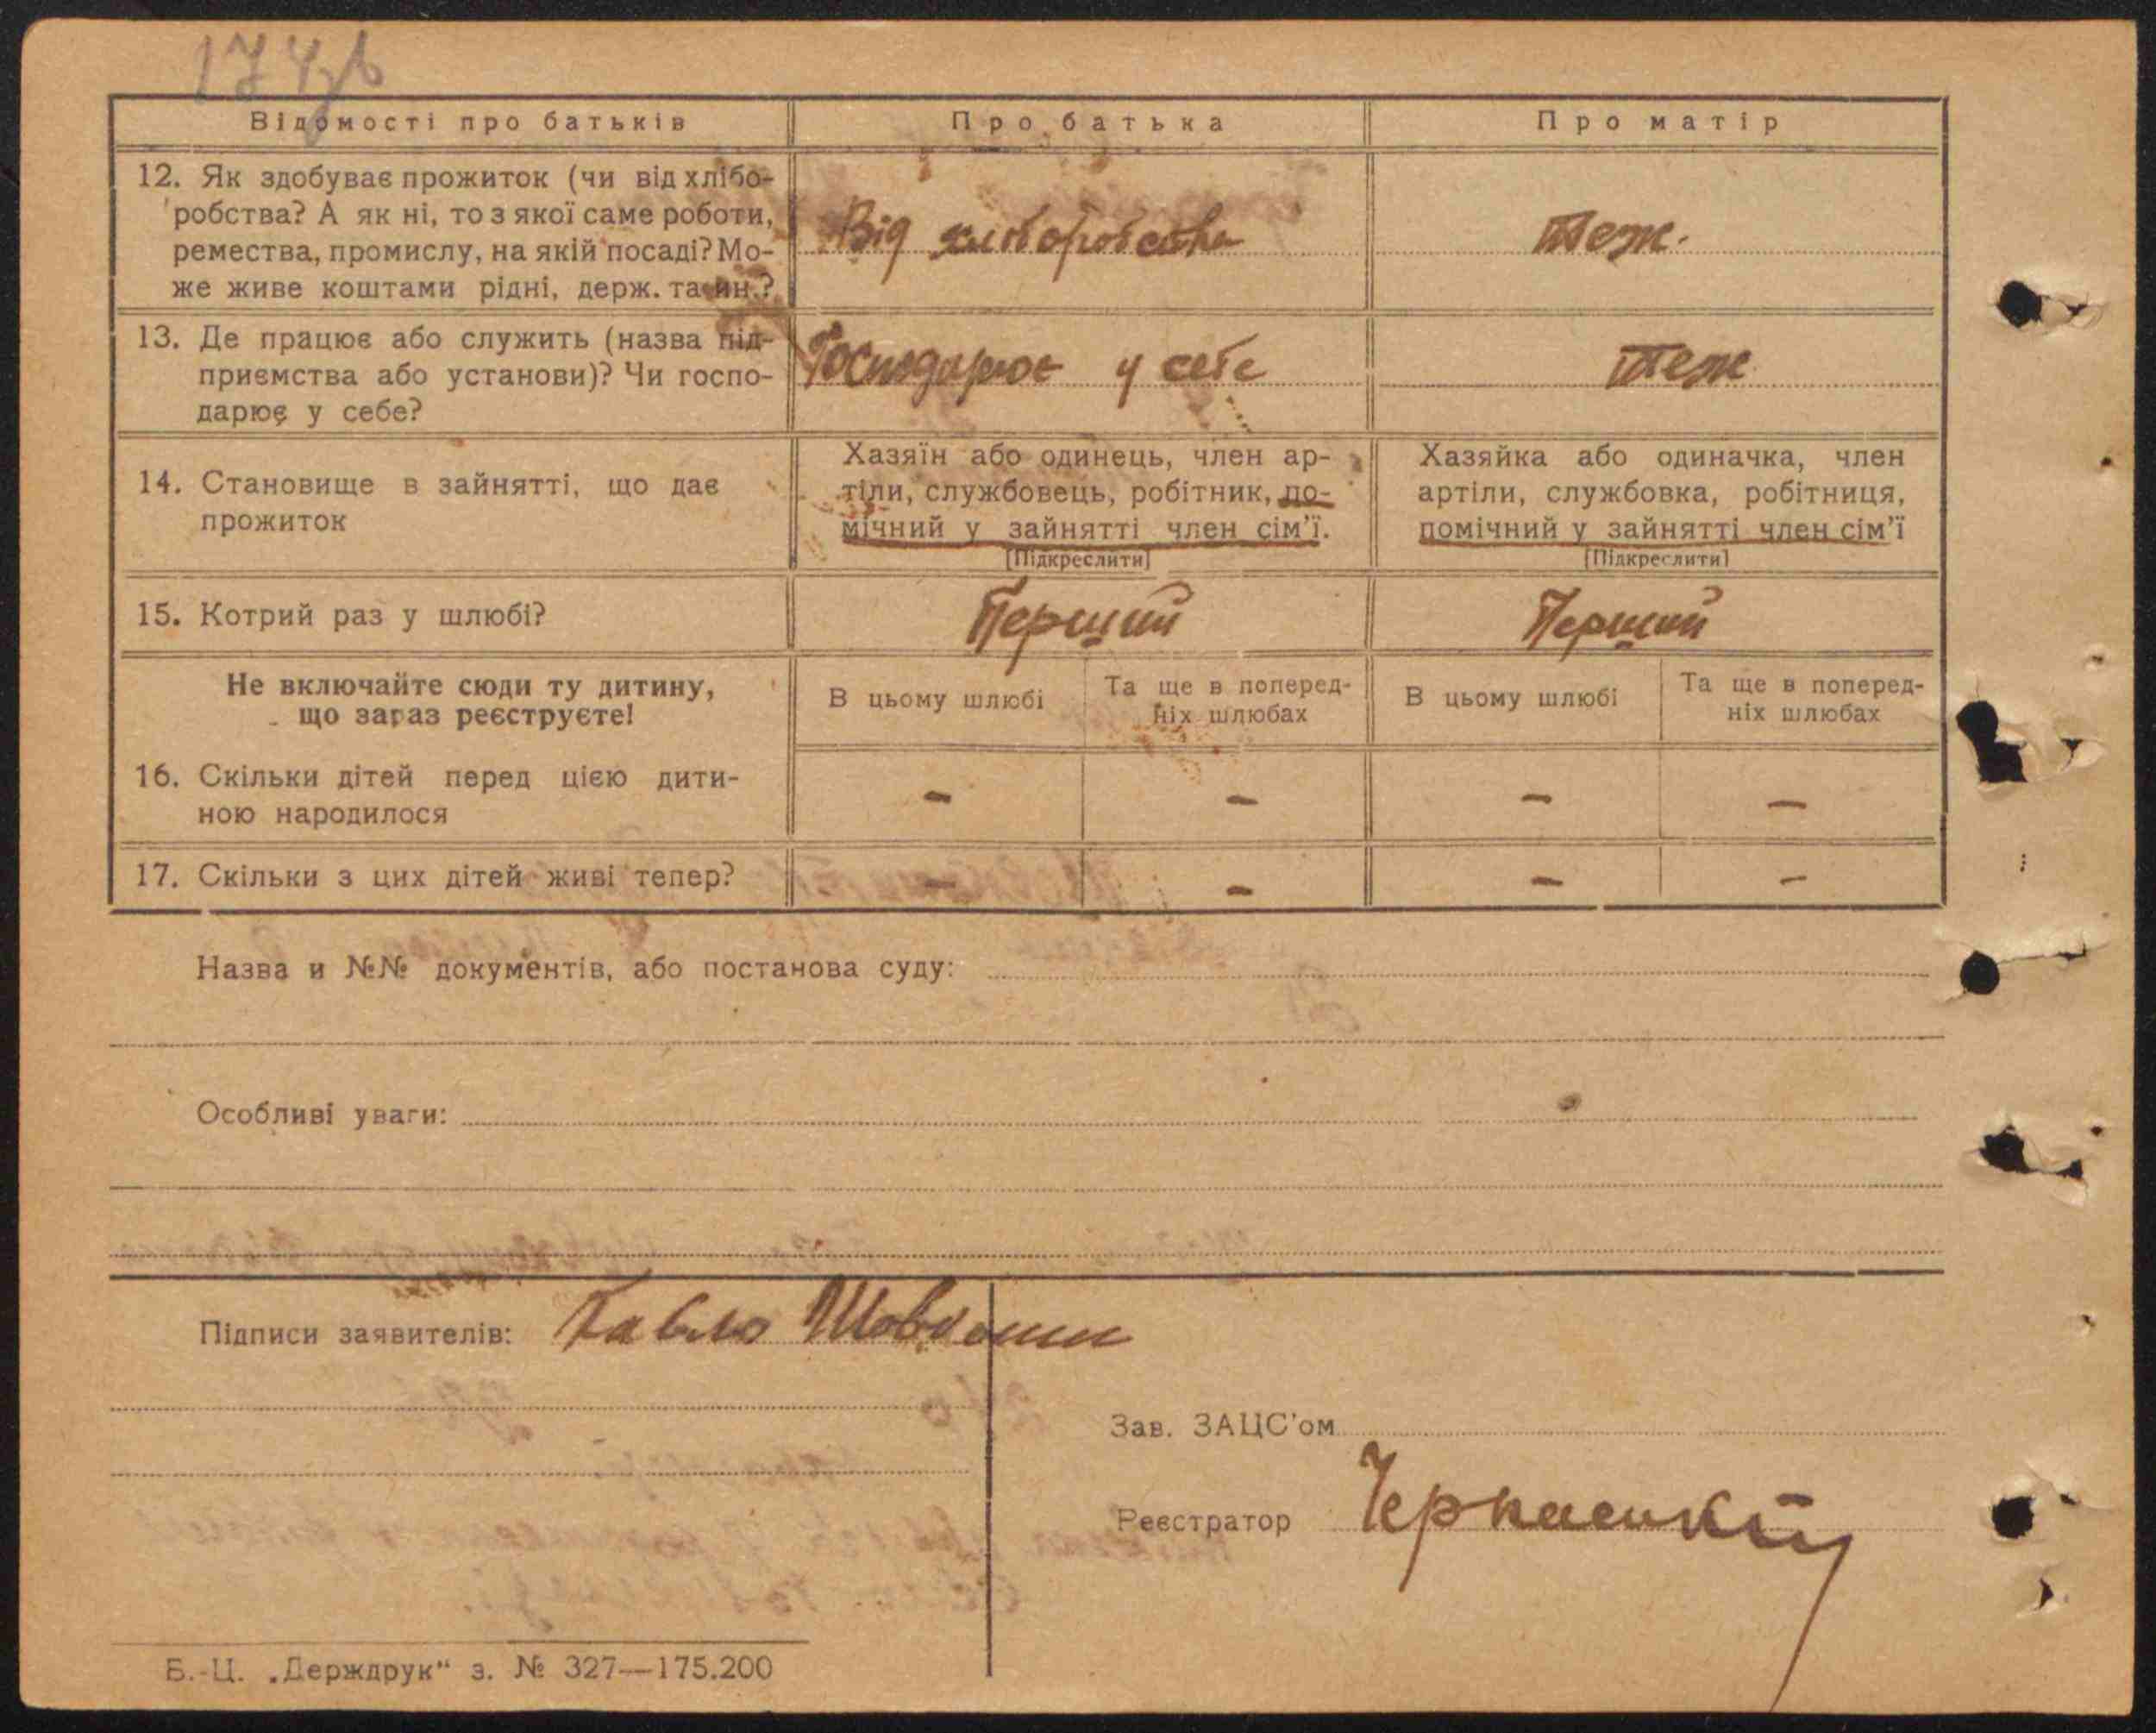 174зв
Відомості про батьків
Про батька
Про матір
12. Як здобуває прожиток (чи від хлібо-
робства? А як ні, то з якої саме роботи,
ремества, промислу, на якій посаді? Мо-
же живе коштами рідні, держ. та ин.?
Від хліборобства
Теж.
13. Де працює або служить (назва під-
приємства або установи)? Чи госпо-
дарює у себе?
Господарює у себе
Теж
14. Становище в зайнятті, що дає
прожиток
Хазяїн або одинець, член ар-
тіли, службовець, робітник, по-
мічний у зайнятті член сім'ї.
[Підкреслити]
Хазяйка або одиначка, член
артіли, службовка, робітниця,
помічний у зайнятті член сім'ї
[Підкреслити]
15. Котрий раз у шлюбі?
Перший
Перший
Не включайте сюди ту дитину,
що зараз реєструєте!
В цьому шлюбі
Та ще в поперед-
ніх шлюбах
В цьому шлюбі
Та ще в поперед-
ніх шлюбах
16. Скільки дітей перед цією дити-
ною народилося
– – – –
17. Скільки з цих дітей живі тепер?
– – – –
Назва и №№ документів, або постанова суду:
Особливі уваги:
Підписи заявителів: Павло
Зав. ЗАЦС'ом
Реєстратор Черкаський
Б.-Ц. „Держдрук“ з. № 327—175.200